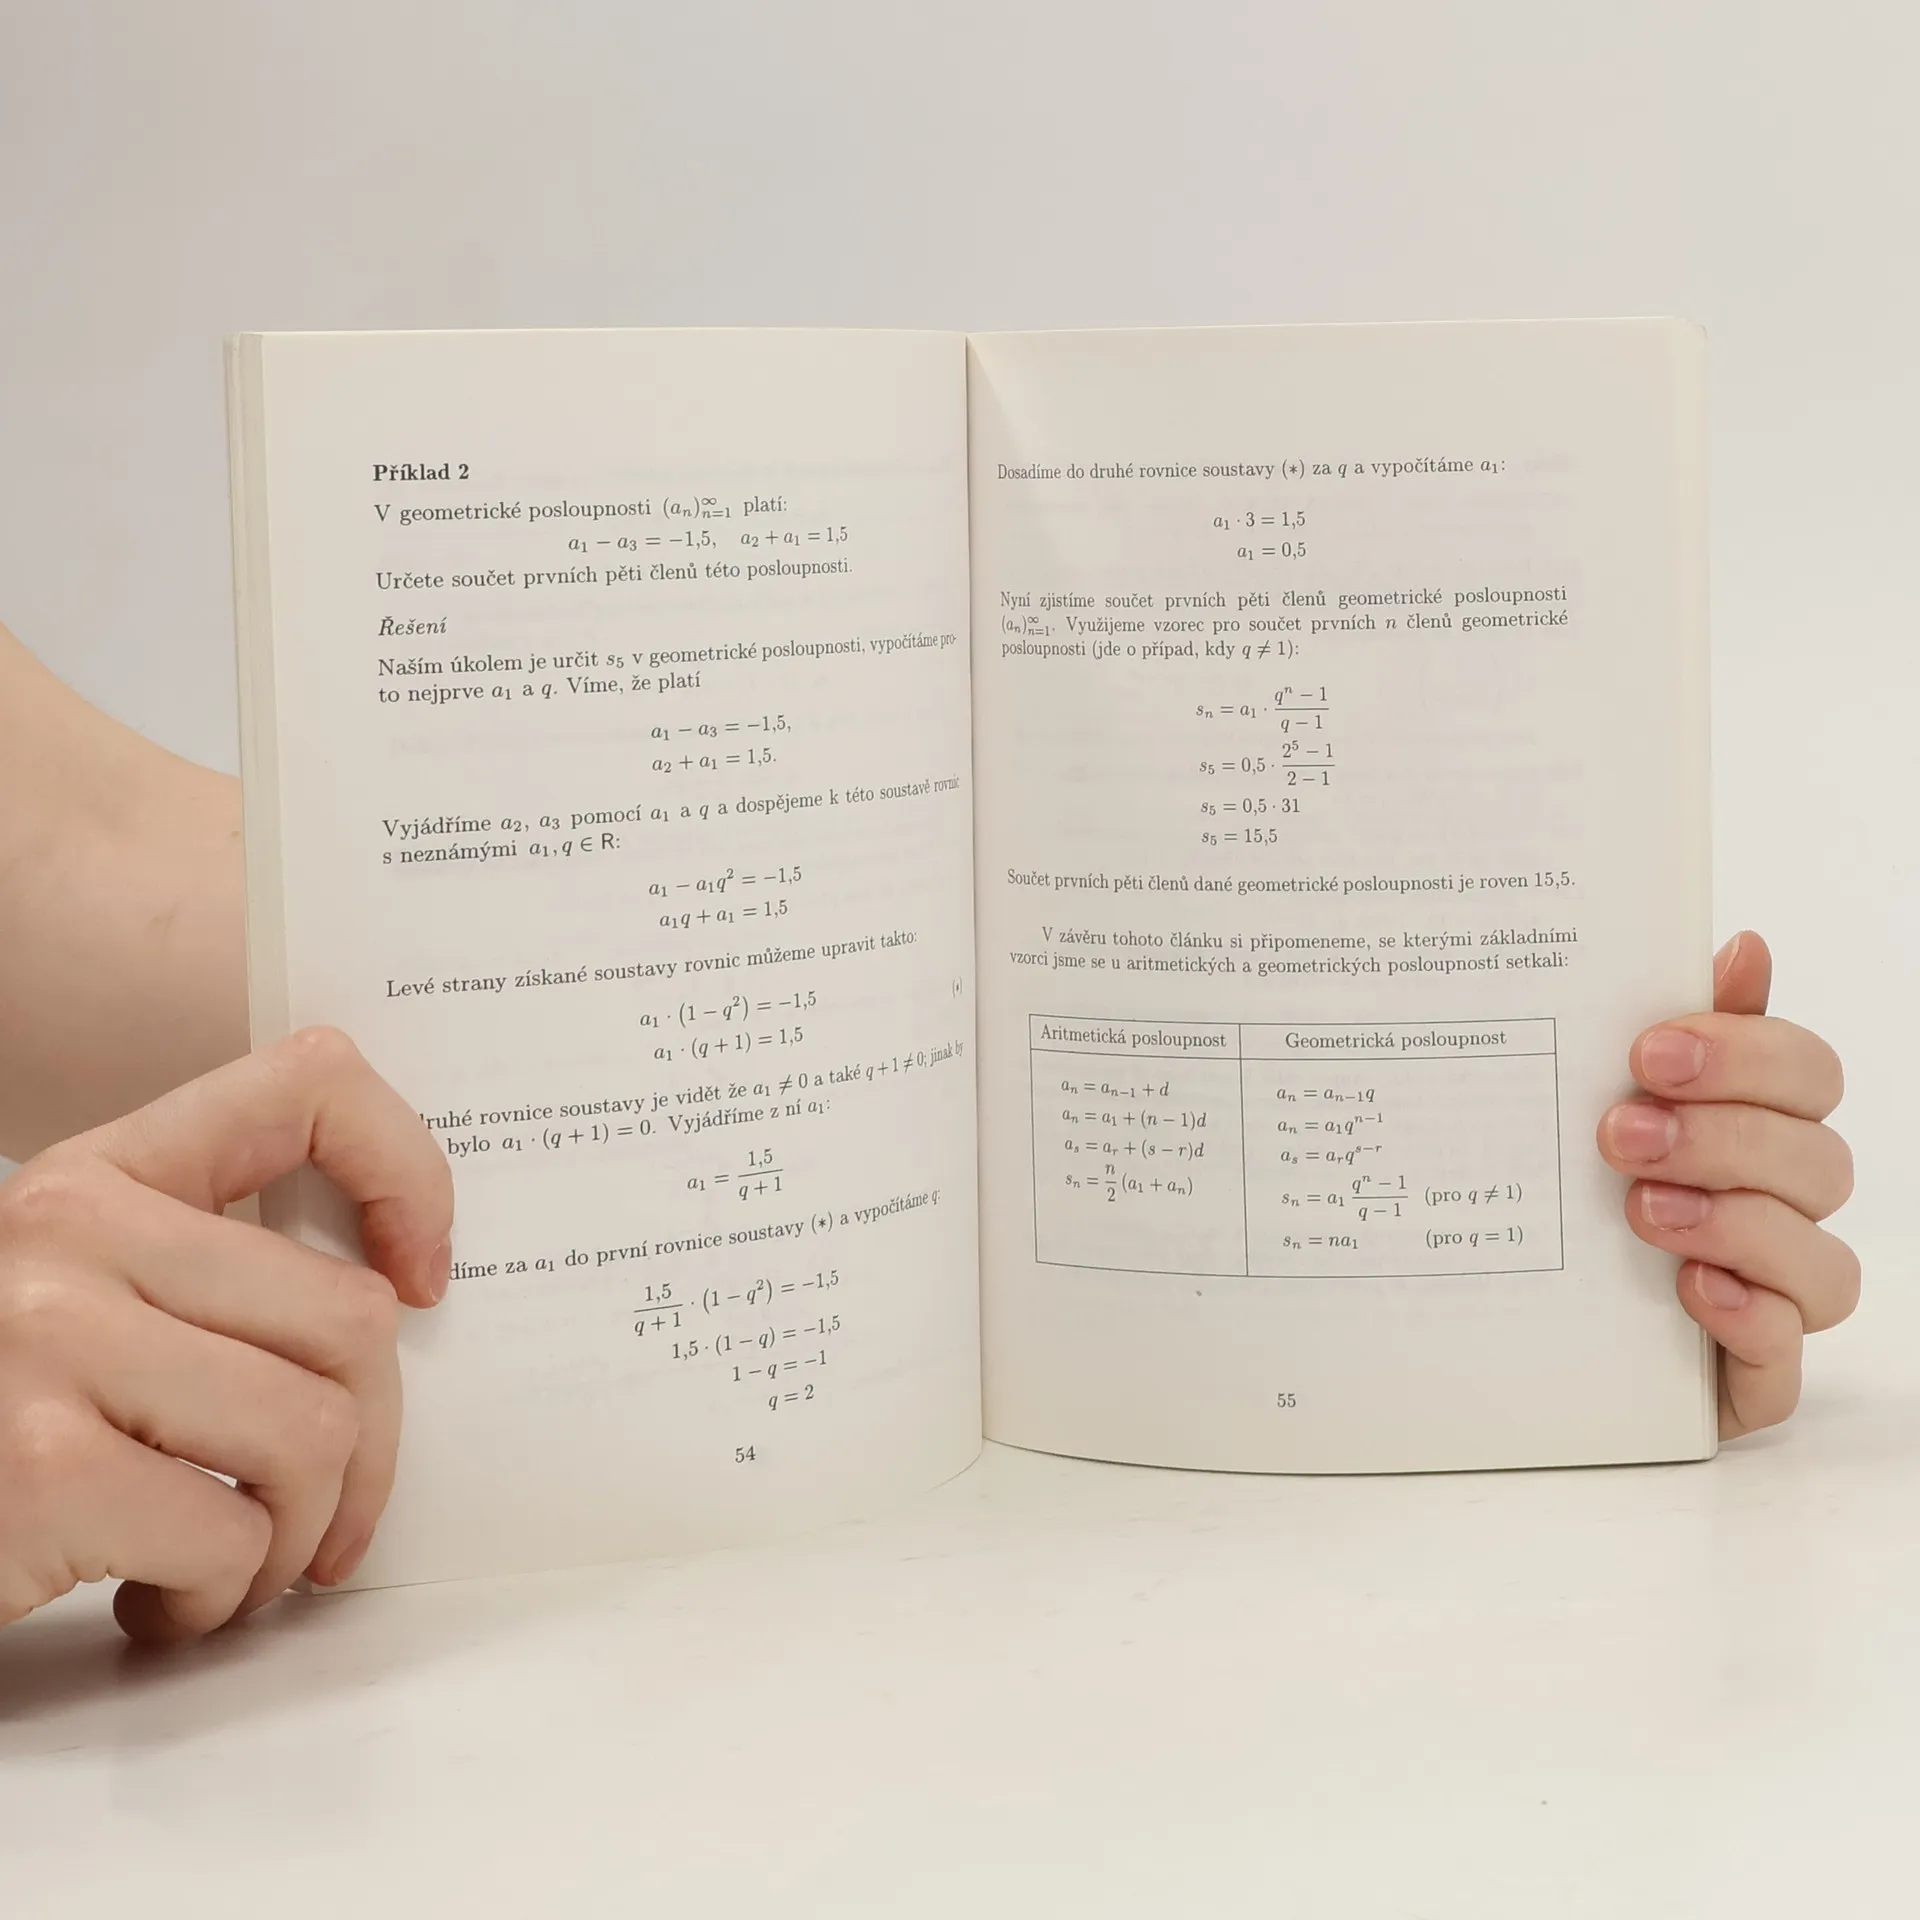 Příklad 2
V geometrické posloupnosti (aₙ)ₙ₌₁^∞ platí:
a₁ − a₃ = −1,5, a₂ + a₁ = 1,5
Určete součet prvních pěti členů této posloupnosti.
Řešení
Naším úkolem je určit s₅ v geometrické posloupnosti, vypočítáme pro-
to nejprve a₁ a q. Víme, že platí
a₁ − a₃ = −1,5,
a₂ + a₁ = 1,5.
Vyjádříme a₂, a₃ pomocí a₁ a q a dospějeme k této soustavě rovnic
s neznámými a₁, q ∈ R:
a₁ − a₁q² = −1,5
a₁q + a₁ = 1,5
Levé strany získané soustavy rovnic můžeme upravit takto:
a₁ · (1 − q²) = −1,5 (*)
a₁ · (q + 1) = 1,5
druhé rovnice soustavy je vidět že a₁ ≠ 0 a také q + 1 ≠ 0; jinak by
bylo a₁ · (q + 1) = 0. Vyjádříme z ní a₁:
a₁ = 1,5/(q + 1)
díme za a₁ do první rovnice soustavy (*) a vypočítáme q:
1,5/(q + 1) · (1 − q²) = −1,5
1,5 · (1 − q) = −1,5
1 − q = −1
q = 2
54
Dosadíme do druhé rovnice soustavy (*) za q a vypočítáme a₁:
a₁ · 3 = 1,5
a₁ = 0,5
Nyní zjistíme součet prvních pěti členů geometrické posloupnosti
(aₙ)ₙ₌₁^∞. Využijeme vzorec pro součet prvních n členů geometrické
posloupnosti (jde o případ, kdy q ≠ 1):
sₙ = a₁ · (qⁿ − 1)/(q − 1)
s₅ = 0,5 · (2⁵ − 1)/(2 − 1)
s₅ = 0,5 · 31
s₅ = 15,5
Součet prvních pěti členů dané geometrické posloupnosti je roven 15,5.
V závěru tohoto článku si připomeneme, se kterými základními
vzorci jsme se u aritmetických a geometrických posloupností setkali:
Aritmetická posloupnost
aₙ = aₙ₋₁ + d
aₙ = a₁ + (n − 1)d
aₛ = aᵣ + (s − r)d
sₙ = n/2 (a₁ + aₙ)
Geometrická posloupnost
aₙ = aₙ₋₁q
aₙ = a₁qⁿ⁻¹
aₛ = aᵣqˢ⁻ʳ
sₙ = a₁ (qⁿ − 1)/(q − 1) (pro q ≠ 1)
sₙ = na₁ (pro q = 1)
55